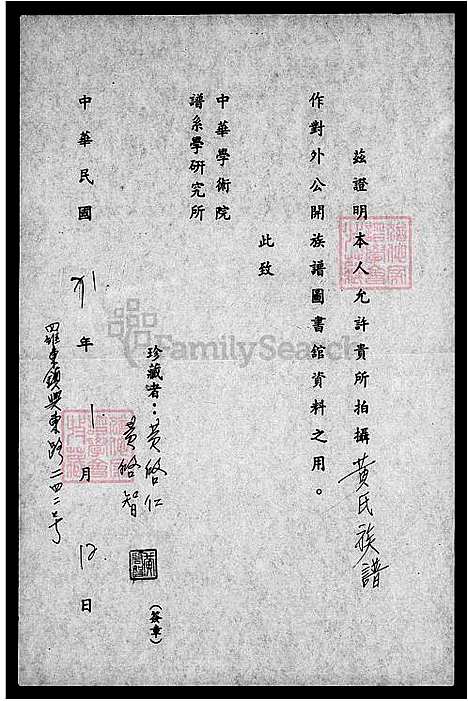 茲證明本人允許貴所拍攝黃氏族譜
作對外公開族譜圖書館資料之用。
此致
中華學術院
譜系學研究所
珍藏者：黃啓仁
黃啓智
(簽章)
中華民國 年 1 月 12 日
羅東鎮興東路二四二号
FamilySearch